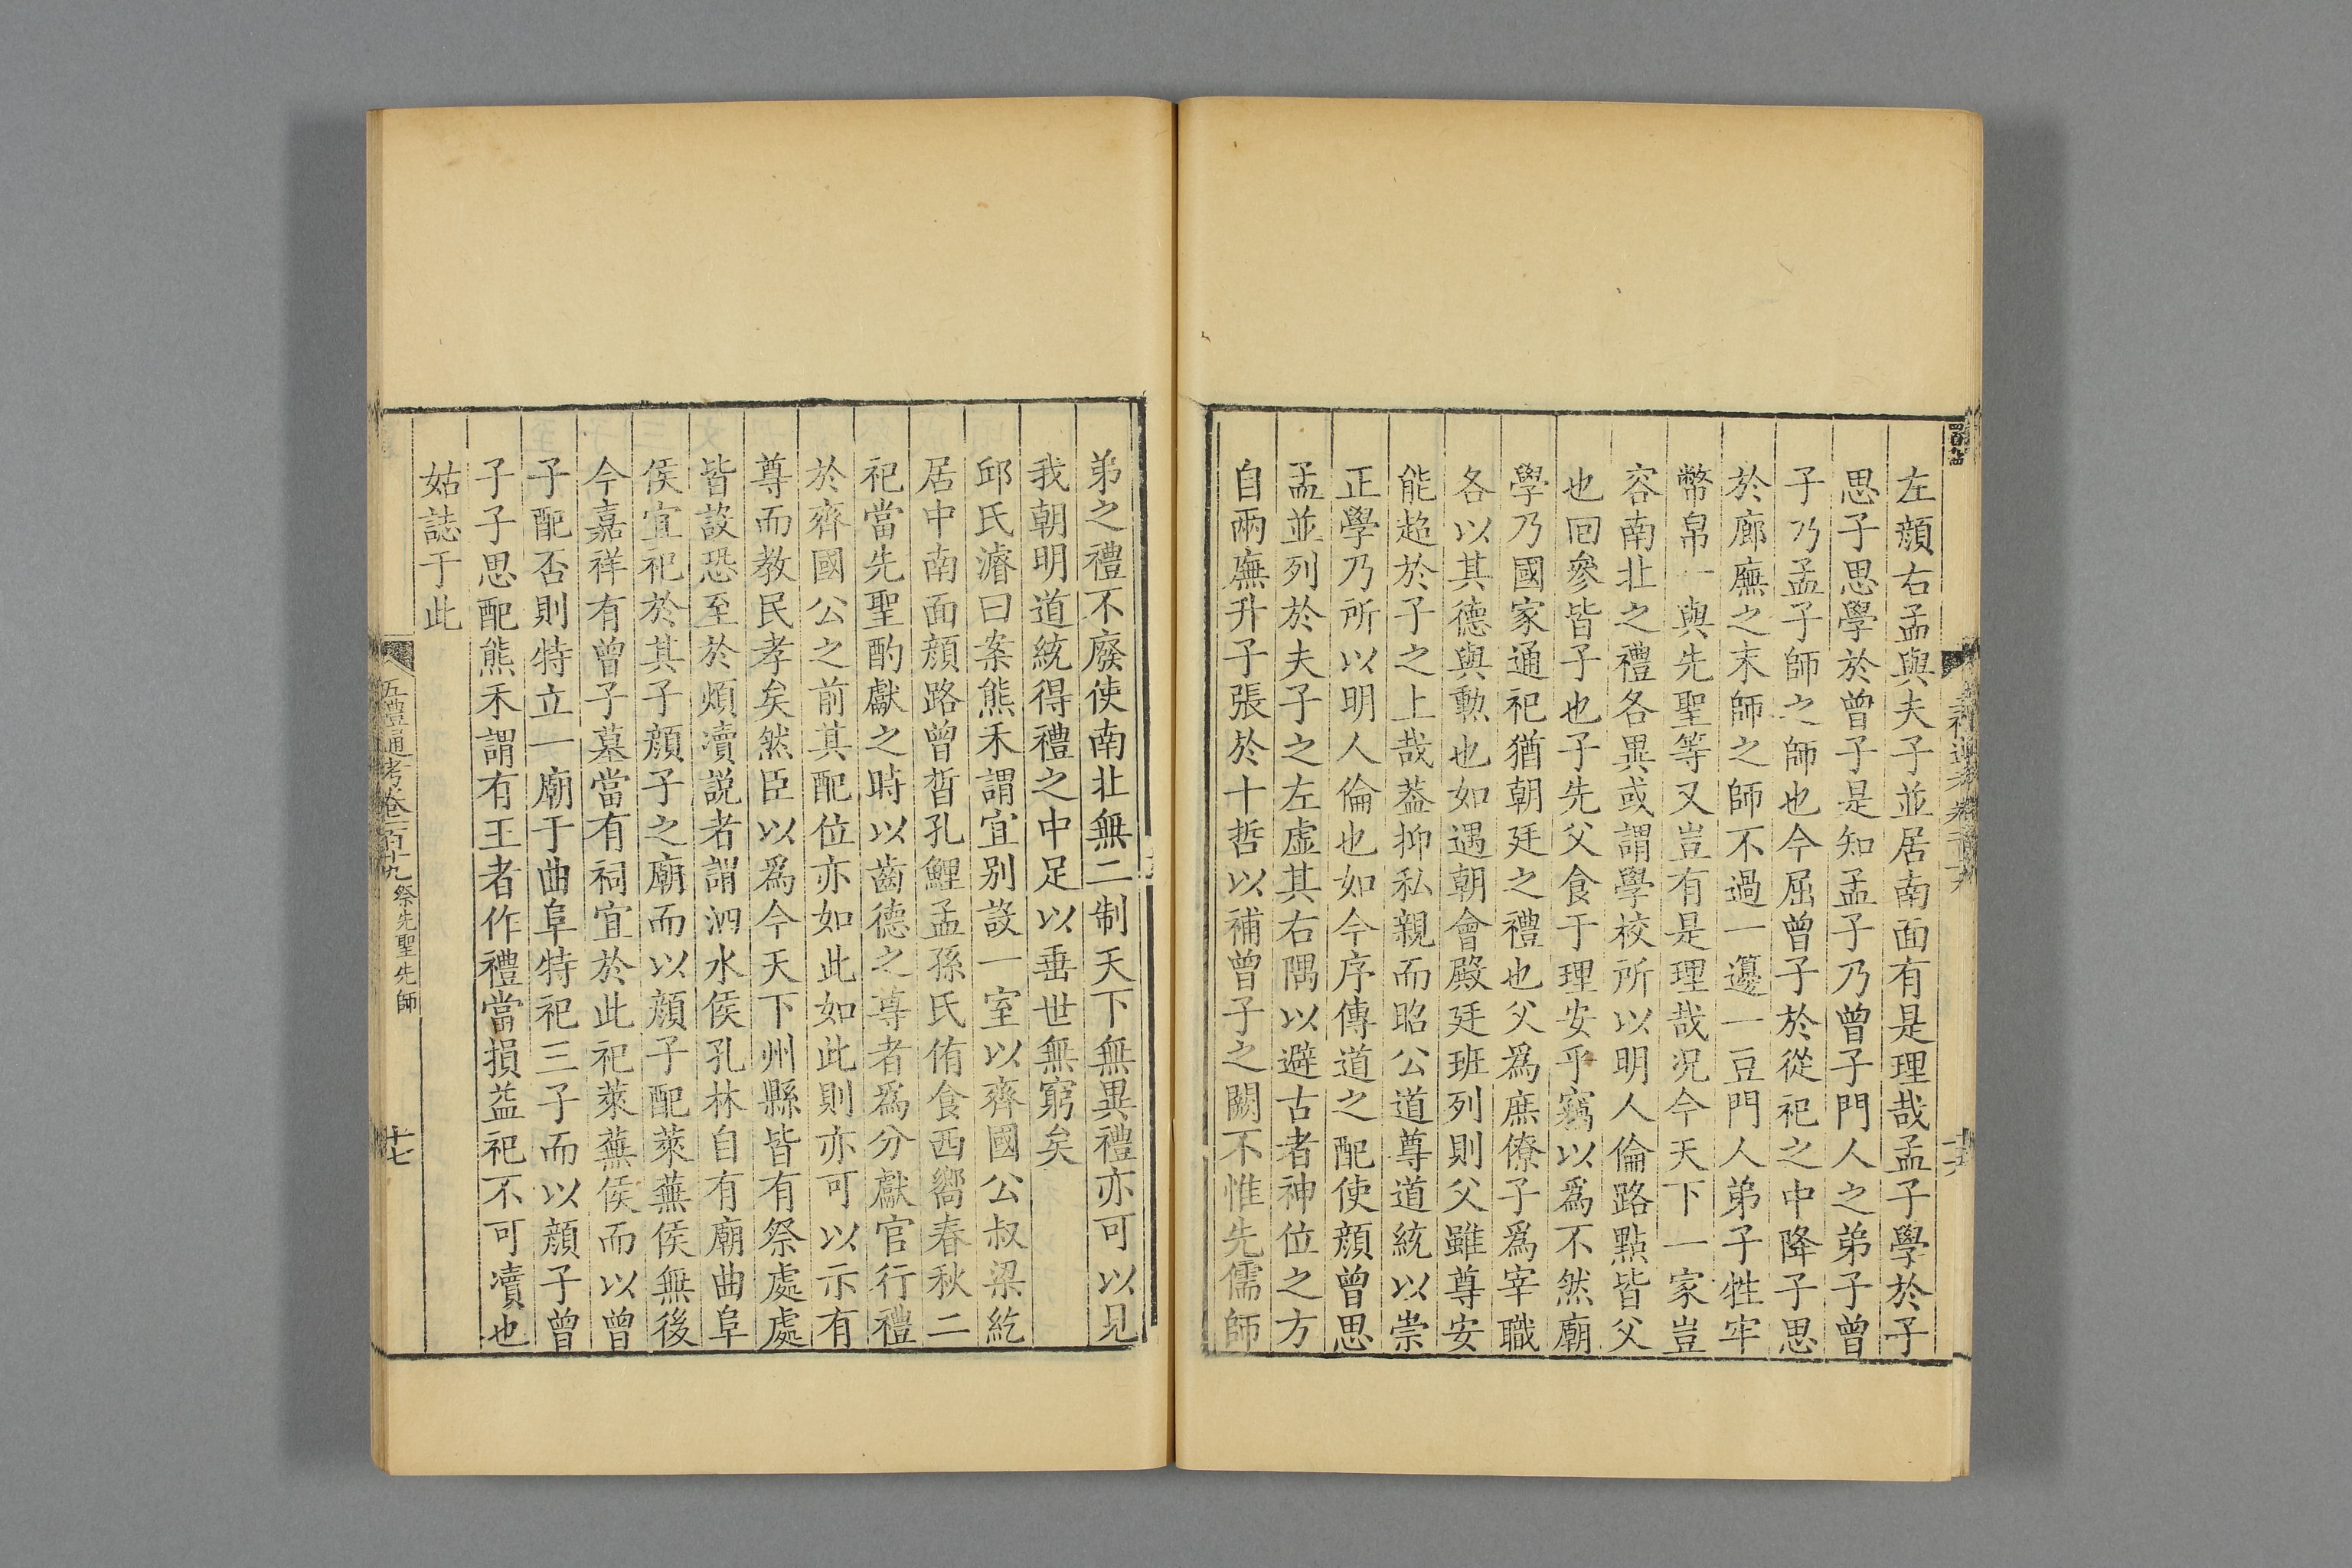 左顏右孟與夫子並居南面有是理哉孟子學於子
思子思學於曾子是知孟子乃曾子門人之弟子曾
子乃孟子師之師也今屈曾子於從祀之中降子思
於廊廡之末師之師不過一籩一豆門人弟子牲牢
幣帛一與先聖等又豈有是理哉況今天下一家豈
容南北之禮各異或謂學校所以明人倫路點皆父
也回參皆子也子先父食于理安乎竊以爲不然廟
學乃國家通祀猶朝廷之禮也父爲庶僚子爲宰職
各以其德與勲也如遇朝會殿廷班列則父雖尊安
能超於子之上哉葢抑私親而昭公道尊道統以崇
正學乃所以明人倫也如今序傳道之配使顏曾思
孟並列於夫子之左虛其右隅以避古者神位之方
自兩廡升子張於十哲以補曾子之闕不惟先儒師
弟之禮不廢使南北無二制天下無異禮亦可以見
我朝明道統得禮之中足以垂世無窮矣
邱氏濬曰案熊禾謂宜别設一室以齊國公叔梁紇
居中南面顏路曾晳孔鯉孟孫氏侑食西嚮春秋二
祀當先聖酌獻之時以齒德之尊者爲分獻官行禮
於齊國公之前其配位亦如此如此則亦可以示有
尊而教民孝矣然臣以爲今天下州縣皆有祭處處
皆設恐至於煩瀆説者謂泗水侯孔林自有廟曲阜
侯宜祀於其子顏子之廟而以顏子配萊蕪侯無後
今嘉祥有曾子墓當有祠宜於此祀萊蕪侯而以曾
子配否則特立一廟于曲阜特祀三子而以顏子曾
子子思配熊禾謂有王者作禮當損益祀不可瀆也
姑誌于此
五禮通考卷一百十九 祭先聖先師 十七